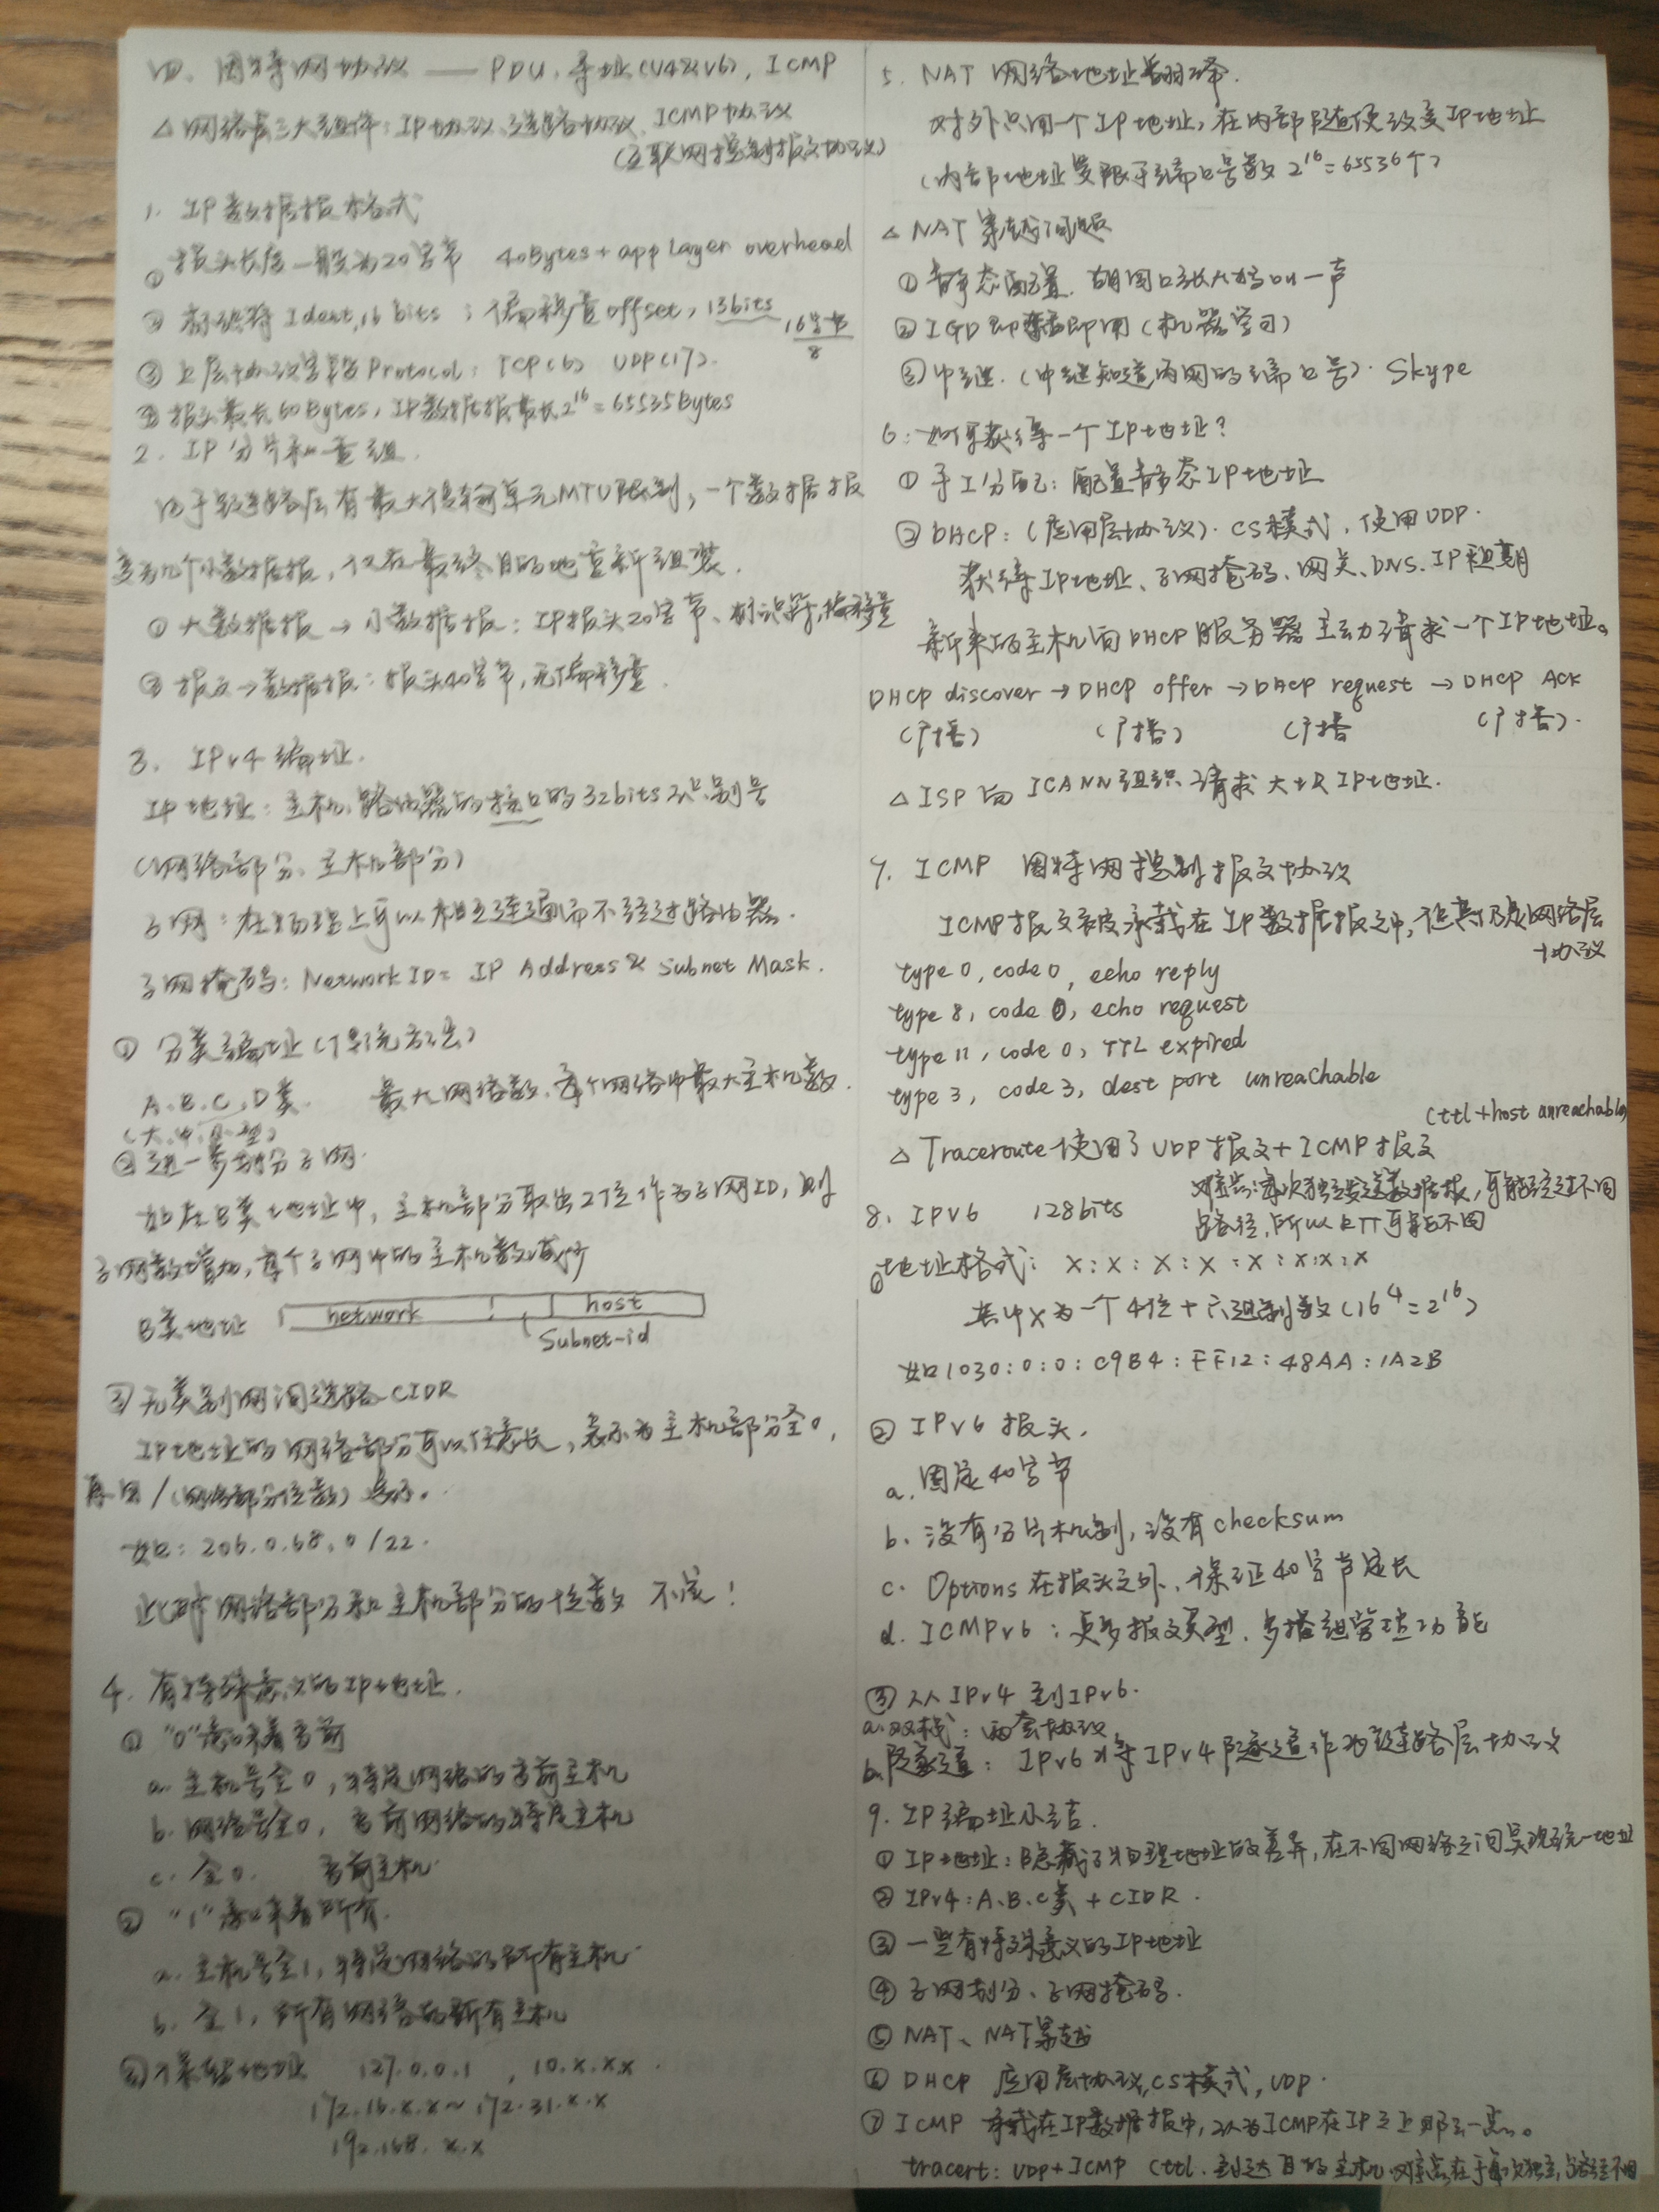 四、因特网协议 —— PDU, 寻址(V4&V6), ICMP
△ 网络层三大组件: IP协议、选路协议、ICMP协议
(互联网控制报文协议)
1. IP数据报格式
① 报头长度一般为20字节 40Bytes + app layer overhead
② 标识符 Ident, 16 bits ; 偏移量offset, 13bits 16字节/8
③ 上层协议字段 Protocol: TCP(6) UDP(17).
④ 报头最长60Bytes, IP数据报最长2^16 = 65535Bytes
2. IP分片和重组.
由于链路层有最大传输单元MTU限制, 一个数据报
变为几个小数据报, 仅在最终目的地重新组装.
① 大数据报 → 小数据报: IP报头20字节、标识符,偏移量
② 报文→数据报: 报头40字节, 无偏移量.
3. IPv4编址.
IP地址: 主机、路由器的接口的32bits识别号
(网络部分、主机部分)
子网: 在物理上可以相互连通而不经过路由器.
子网掩码: Network ID = IP Address & Subnet Mask.
① 分类编址(传统方法)
A、B、C、D类. 最大网络数、每个网络中最大主机数.
(大、中、小型)
② 进一步划分子网.
如在B类地址中, 主机部分取出2位作为子网ID, 则
子网数增加, 每个子网中的主机数减少
B类地址 network host
Subnet-id
③ 无类别网间选路 CIDR
IP地址的网络部分可以任意长, 表示为主机部分全0,
再用 /(网络部分位数) 表示。
如: 206.0.68.0/22.
此时网络部分和主机部分的位数 不定!
4. 有特殊意义的IP地址.
① “0”意味着当前
a. 主机号全0, 特定网络的当前主机
b. 网络号全0, 当前网络的特定主机
c. 全0. 当前主机.
② “1”意味着所有.
a. 主机号全1, 特定网络的所有主机.
b. 全1, 所有网络的所有主机
③ 地址 127.0.0.1 , 10.x.x.x .
172.16.x.x ~ 172.31.x.x
192.168.x.x
5. NAT 网络地址翻译.
对外只用一个IP地址, 在内部随便改变IP地址
(内部地址受限于端口号数 2^16=65536个)
△ NAT 穿越问题
① 静态配置. 朝窗口张大妈叫一声
② IGD 即插即用 (机器学习)
③ 中继. (中继知道内网的端口号). Skype
6. 如何获得一个IP地址?
① 手工分配: 配置静态IP地址
② DHCP: (应用层协议). CS模式, 使用UDP.
获得IP地址、子网掩码、网关、DNS、IP租期
新来的主机向DHCP服务器 主动请求一个IP地址。
DHCP discover → DHCP offer → DHCP request → DHCP ACK
(广播) (广播) (广播 (广播).
△ ISP向 ICANN组织 请求 大块IP地址.
7. ICMP 因特网控制报文协议
ICMP报文被承载在IP数据报之中, 但其仍是网络层
协议
type 0, code 0, echo reply
type 8, code 0, echo request
type 11, code 0, TTL expired
type 3, code 3, dest port unreachable
(ttl + host unreachable)
△ Traceroute使用了UDP报文 + ICMP报文
难点: 每次独立发送数据报, 可能经过不同
路径, 所以RTT可能不同
8. IPV6 128bits
① 地址格式: x:x:x:x:x:x:x:x
其中x为一个4位十六进制数(16^4=2^16)
如1030:0:0:C9B4:FF12:48AA:1A2B
② IPv6 报头.
a. 固定40字节
b. 没有分片机制, 没有checksum
c. Options在报头之外, 保证40字节定长
d. ICMPv6: 更多报文类型, 多播组管理功能
③ 从IPv4 到IPv6.
a. 双栈: 两套协议
b. 隧道: IPv6将IPv4隧道作为链路层协议
9. IP编址小结.
① IP地址: 隐藏了物理地址的差异, 在不同网络之间实现统一地址
② IPv4: A、B、C类 + CIDR.
③ 一些有特殊意义的IP地址
④ 子网划分、子网掩码.
⑤ NAT、NAT穿越
⑥ DHCP 应用层协议, CS模式, UDP.
⑦ ICMP 承载在IP数据报中, 认为ICMP在IP之上那么一点。
tracert: UDP+ICMP (ttl. 到达目的主机. 难点在于每次独立, 路径不同